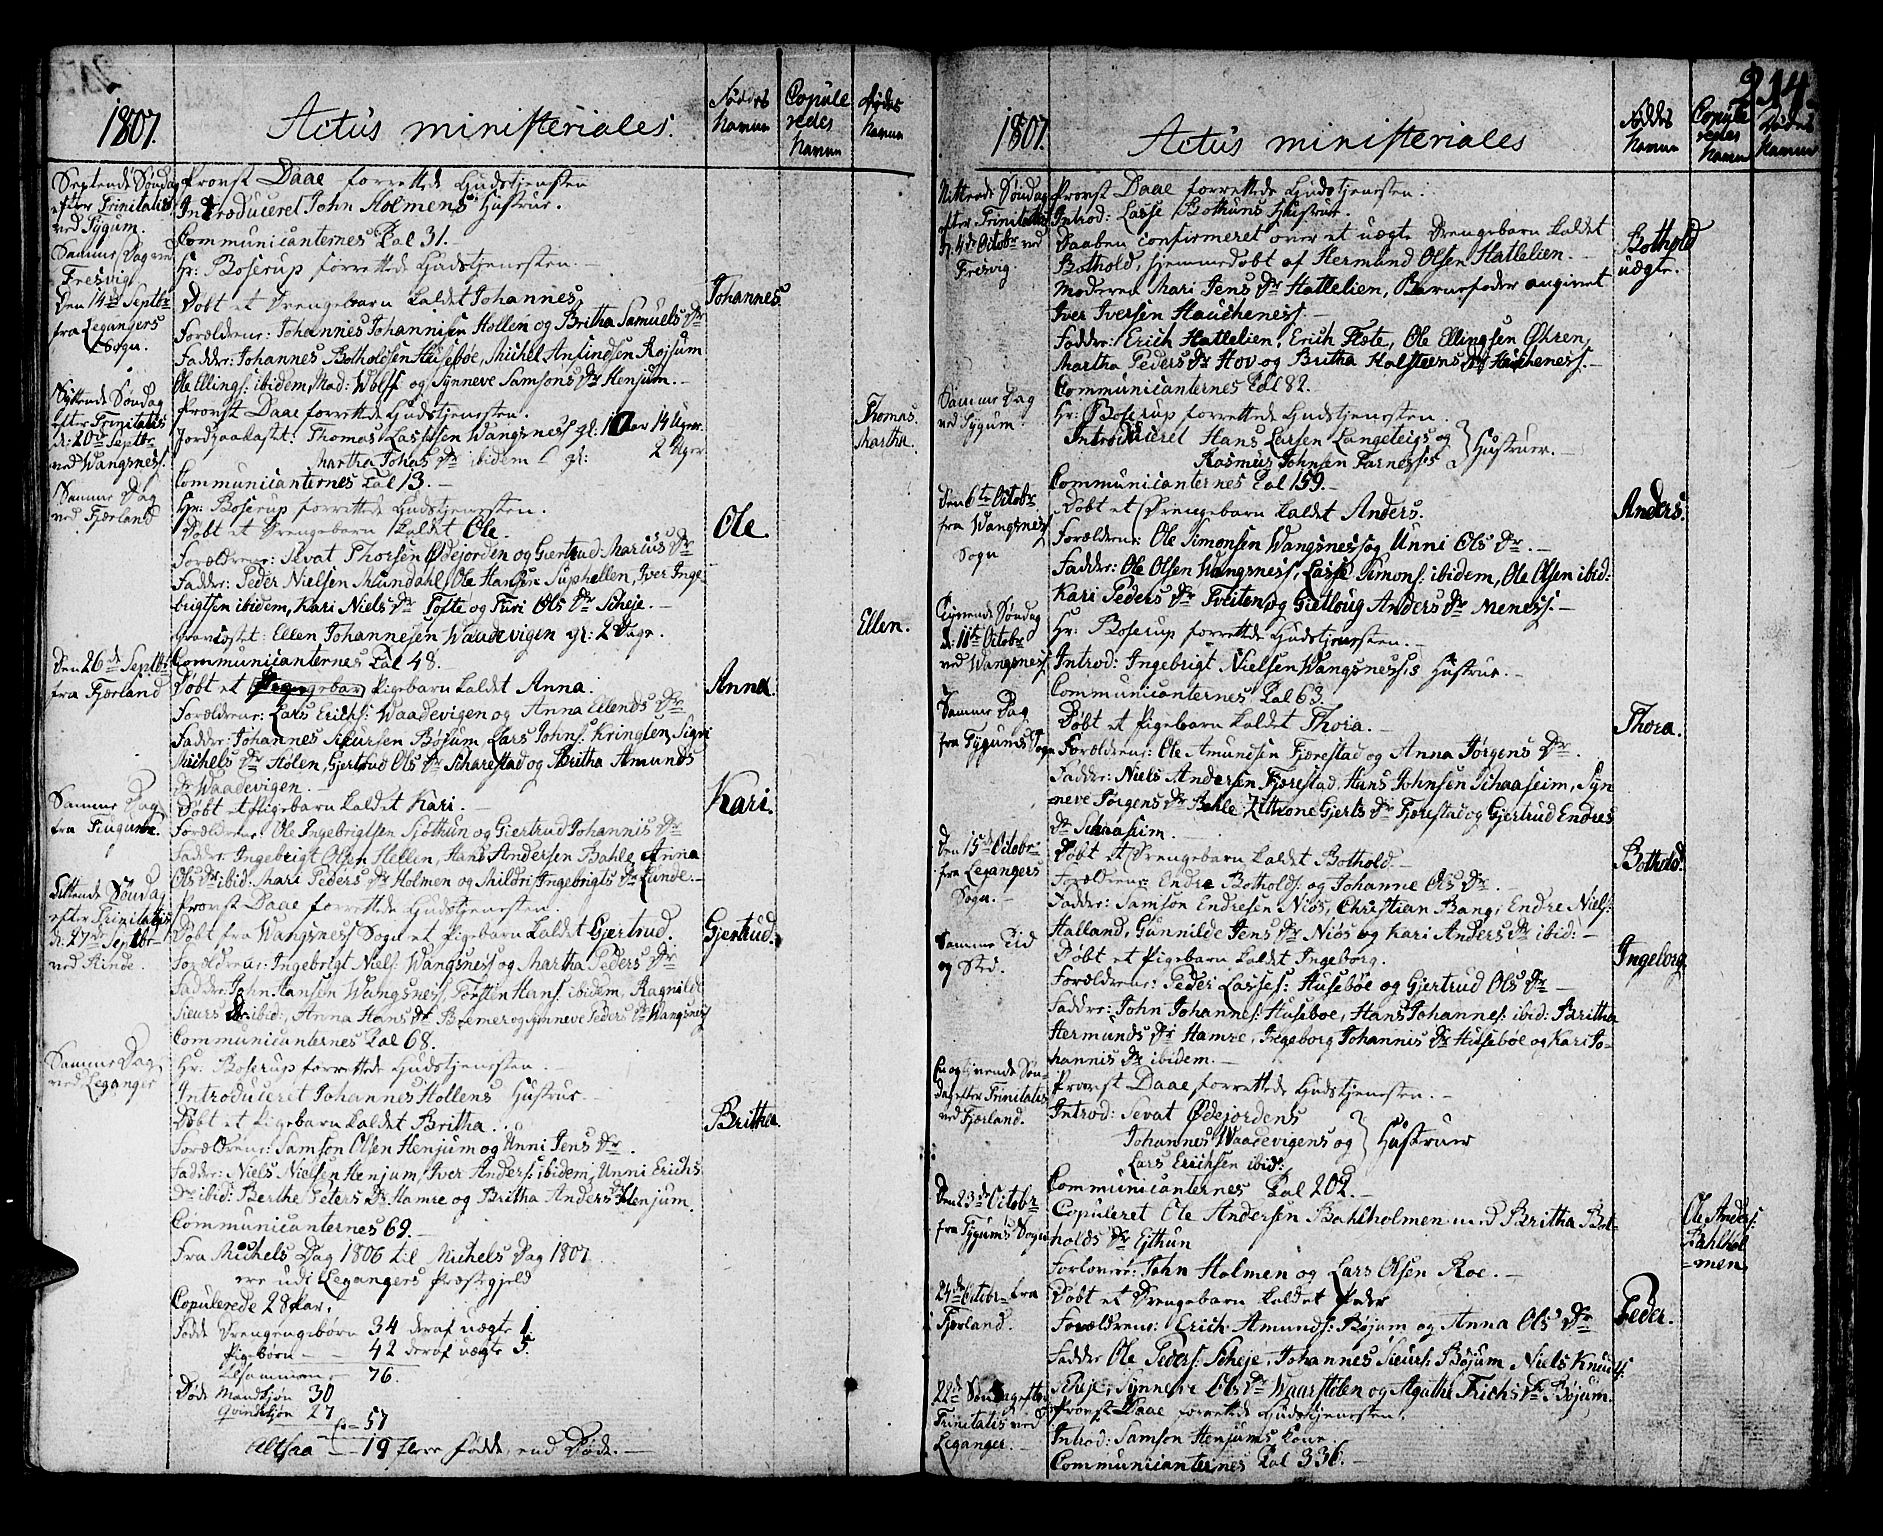 1807.
Actus ministeriales.
Føddes Navne
Copuleredes Navne
Dødes Navne
Septende Søndag efter Trinitatis ved Tygum.
Provst Daae forrettede Gudstjensten
Introduceret John Holmens Hustrue.
Communicanternes Tal 31.
Samme Dag ved Fresvig
Hr: Boserup forrettede Gudstjensten.
Den 14de Septbr fra Legangers Sogn.
Døbt et Drengebarn kaldet Johannes
Johannes.
Forældrene: Johannes Johannesen Hollen og Britha Samuels Dr
Fadder: Johannes Botholdsen Huseboe, Michel Ansindsen Røjsum
Ole Ellings: ibidem, Mad: Wolff og Synneve Samsons Dr Henjum.
Syttende Søndag efter Trinitatis d: 20de Septbr ved Wangsness.
Provst Daae forrettede Gudstjensten.
Jordpaakastet: Thomas Lassesen Wangsness gl: Aar 14 Uger
Thomas
Martha Johas Dr ibidem gl: 2 Uger
Martha.
Communicanternes Tal 13.
Samme Dag ved Fjærland
Hr: Boserup forrettede Gudstjensten.
Døbt et Drengebarn kaldet Ole.
Ole.
Forældrene: Sivat Thorsen Ødejorden og Giertrud Marius Dr
Fadder: Peder Nielsen Mundahl, Ole Hansen Suphellen, Iver Inge-
brigtsen ibidem, Kari Niels Dr Tofte og Turi Ols Dr Scheje.
Gravfæstet: Ellen Johannesen Waadevigen gl: 2 Dage.
Ellen.
Communicanternes Tal 48.
Den 26de Septbr fra Fjærland
Døbt et Pigebarn kaldet Anna.
Anna.
Forældrene: Lars Erichs: Waadevigen og Anna Ellends Dr
Fadder: Johannes Sjursen Bøjum, Lars Johns: Kringlen, Signi
Michels Dr Hølen, Gjertrud Ols Dr Scharestad og Britha Amunds
Dr Waadevigen.
Samme Dag fra Tiugum.
Døbt et Pigebarn kaldet Kari.
Kari.
Forældrene: Ole Ingebrigtsen Sjøthun og Giertrud Johannis Dr
Fadder: Ingebrigt Olsen Hellen, Hans Andersen Bahle, Anna
Ols Dr ibid: Mari Peders Dr Holmen og Mildri Ingebrigts Dr Lunde.
Attende Søndag efter Trinitatis d: 27de Septbr ved Rinde.
Provst Daae forrettede Gudstjensten.
Døbt fra Wangsness Sogn et Pigebarn kaldet Gjertrud.
Gjertrud.
Forældrene: Ingebrigt Niels: Wangsness og Martha Peders Dr
Fadder: John Hansen Wangsness, Torsten Hans: ibidem, Ragnilde
Sieurs Dr ibid:, Anna Hans Dr Bremer og Synneve Peders Dr Wangsness
Communicanternes Tal 68.
Samme Dag ved Leganger
Hr: Boserup forrettede Gudstjensten.
Introduceret Johannes Hollens Hustrue
Døbt et Pigebarn kaldet Britha.
Britha.
Forældrene: Samson Olsen Henjum og Unni Jens Dr.
Fadder: Niels Nielsen Henjum, Iver Anders: ibidem, Unni Erichs
Dr ibid: Berthe Peters Dr Hamre og Britha Anders Dr Henjum.
Communicanternes 69.
Fra Michels Dag 1806 til Michels Dag 1807.
ere udi Legangers Præstegjeld
Copulerede 28 Par,
Fødde Drengengebørn 34 deraf uægte 1.
Pigebørn 42 deraf uægte 5.
Tilsammen 76.
Døde Mandkjøn 30
Qvindekjøn 27
57
Altsaa 19 flere fødde, end Døde.
214.
1807.
Actus ministeriales
Føddes Navne
Copuleredes Navne
Dødes Navne
Nittende Søndag efter Trinitatis d. 4de Octobr ved Fresvig.
Provst Daae forrettede Gudstjensten.
Introd: Lasse Bothuns Hustrue.
Daaben confirmeret over et uægte Drengebarn kaldet
Bothold uægte.
Bothold, hjemmedøbt af Hermund Olsen Hattelien.
Moderen Mari Jens Dr Hattelien, Barnefader angivet
Iver Iversen Haucheness.
Fadder: Erich Hattelien, Erich Fløte, Ole Ellingsen Øhren,
Martha Peders Dr Hov og Britha Holsteens Dr Haucheness.
Communicanternes Tal 82.
Samme Dag ved Tygum.
Hr: Boserup forrettede Gudstjensten.
Introduceret Hans Larsen Langeteigs og
Rasmus Johnsen Farnesses } Hustruer.
Communicanternes Tal 159.
Den 6te Octobr fra Wangsness Sogn
Døbt et Drengebarn kaldet Anders.
Anders.
Forældrene: Ole Simonsen Wangsness og Unni Ols Dr.
Fadder: Ole Olsen Wangsness, Lasse Simons: ibidem, Ole Olsen ibid:
Kari Peders Dr Tveiten og Gietloug Anders Dr Meness.
Tyvende Søndag d: 11te Octobr ved Wangsness.
Hr: Boserup forrettede Gudstjensten.
Introd: Ingebrigt Nielsen Wangsness's Hustrue.
Communicanternes Tal 63.
Samme Dag fra Tygums Sogn
Døbt et Pigebarn kaldet Thora.
Thora.
Forældrene: Ole Amundsen Fjærestad og Anna Jørgens Dr.
Fadder: Niels Andersen Fjærestad, Hans Johnsen Schaaseim, Syn
neve Jørgens Dr Bahle, Gjerts Dr Fjærestad og Gjertrud Endres
Dr Schaaseim.
Den 15de Octobr fra Legangers Sogn.
Døbt et Drengebarn kaldet Bothold.
Bothold.
Forældrene Endre Botholds: og Johanne Ols Dr.
Fadder: Samson Endresen Niøs, Christian Bang, Endre Niels:
Halland, Gunnilde Jens Dr Niøs og Kari Anders Dr ibid:
Samme Tid og Sted.
Døbt et Pigebarn kaldet Ingeborg.
Ingeborg
Forældrene: Peder Lasses: Husebøe og Gjertrud Ols Dr
Fadder: John Johannes: Huseboe, Hans Johannes: ibid: Britha
Hermunds Dr Hamre, Ingeborg Johannis Dr Husebøe og Kari Jo-
hannis Dr ibidem.
Enogtyvende Søndag efter Trinitatis ved Fjærland.
Provst Daae forrettede Gudstjensten.
Introd: Sevat Ødejordens
Johannes Waadevigens og } Hustruer
Lars Erichsen ibid:
Communicanternes Tal 202.
Den 23de Octobr fra Tygums Sogn
Copuleret Ole Andersen Bahlholmen med Britha Bot-
Ole Anders: Bahlhol-men
holds Dr Ejthun
Forlovere: John Holmen og Lars Olsen Roe.
24de Octobr fra Fjærland.
Døbt et Drengebarn kaldet Peder
Peder.
Forældrene: Erich Amunds: Bøjum og Anna Ols Dr
Fadder Ole Peders: Scheje, Johannes Sieurs: Bøjum, Niels Knuds:
Scheje, Synneve Ols Dr Waarstølen og Agathe Erichs Dr Bøjum.
22de Søndag efter Trinitatis ved Leganger.
Provst Daae forrettede Gudstjensten.
Introd: Samson Henjums Kone.
Communicanternes Tal 336.